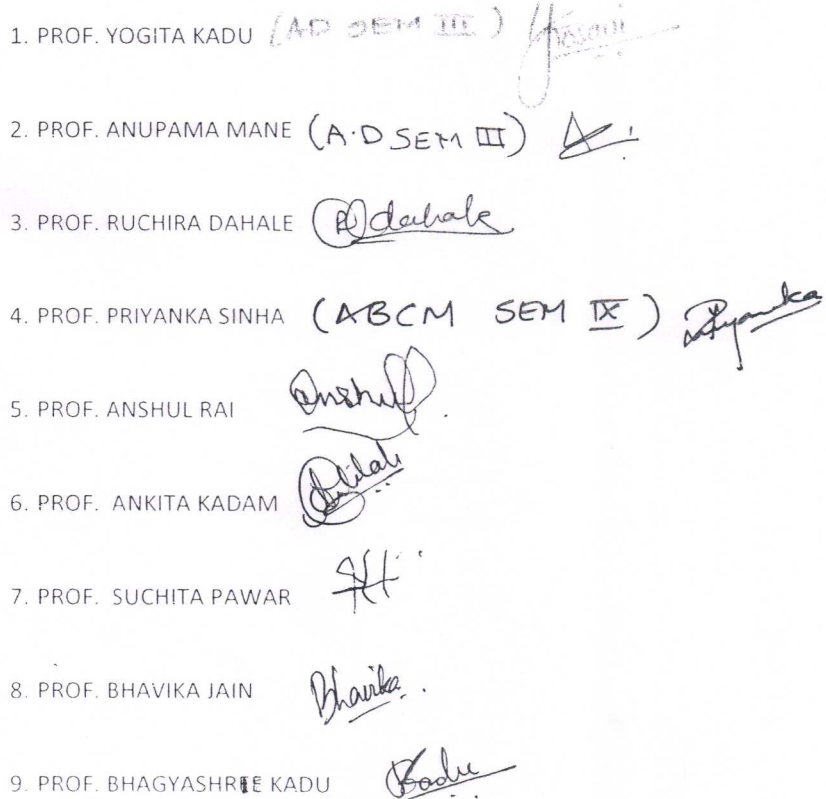 1. PROF. YOGITA KADU (AD SEM III)
2. PROF. ANUPAMA MANE (A.D SEM III)
3. PROF. RUCHIRA DAHALE Rdahale
4. PROF. PRIYANKA SINHA (ABCM SEM IX) Priyanka
5. PROF. ANSHUL RAI Anshul
6. PROF. ANKITA KADAM
7. PROF. SUCHITA PAWAR
8. PROF. BHAVIKA JAIN Bhavika
9. PROF. BHAGYASHREE KADU Kadu